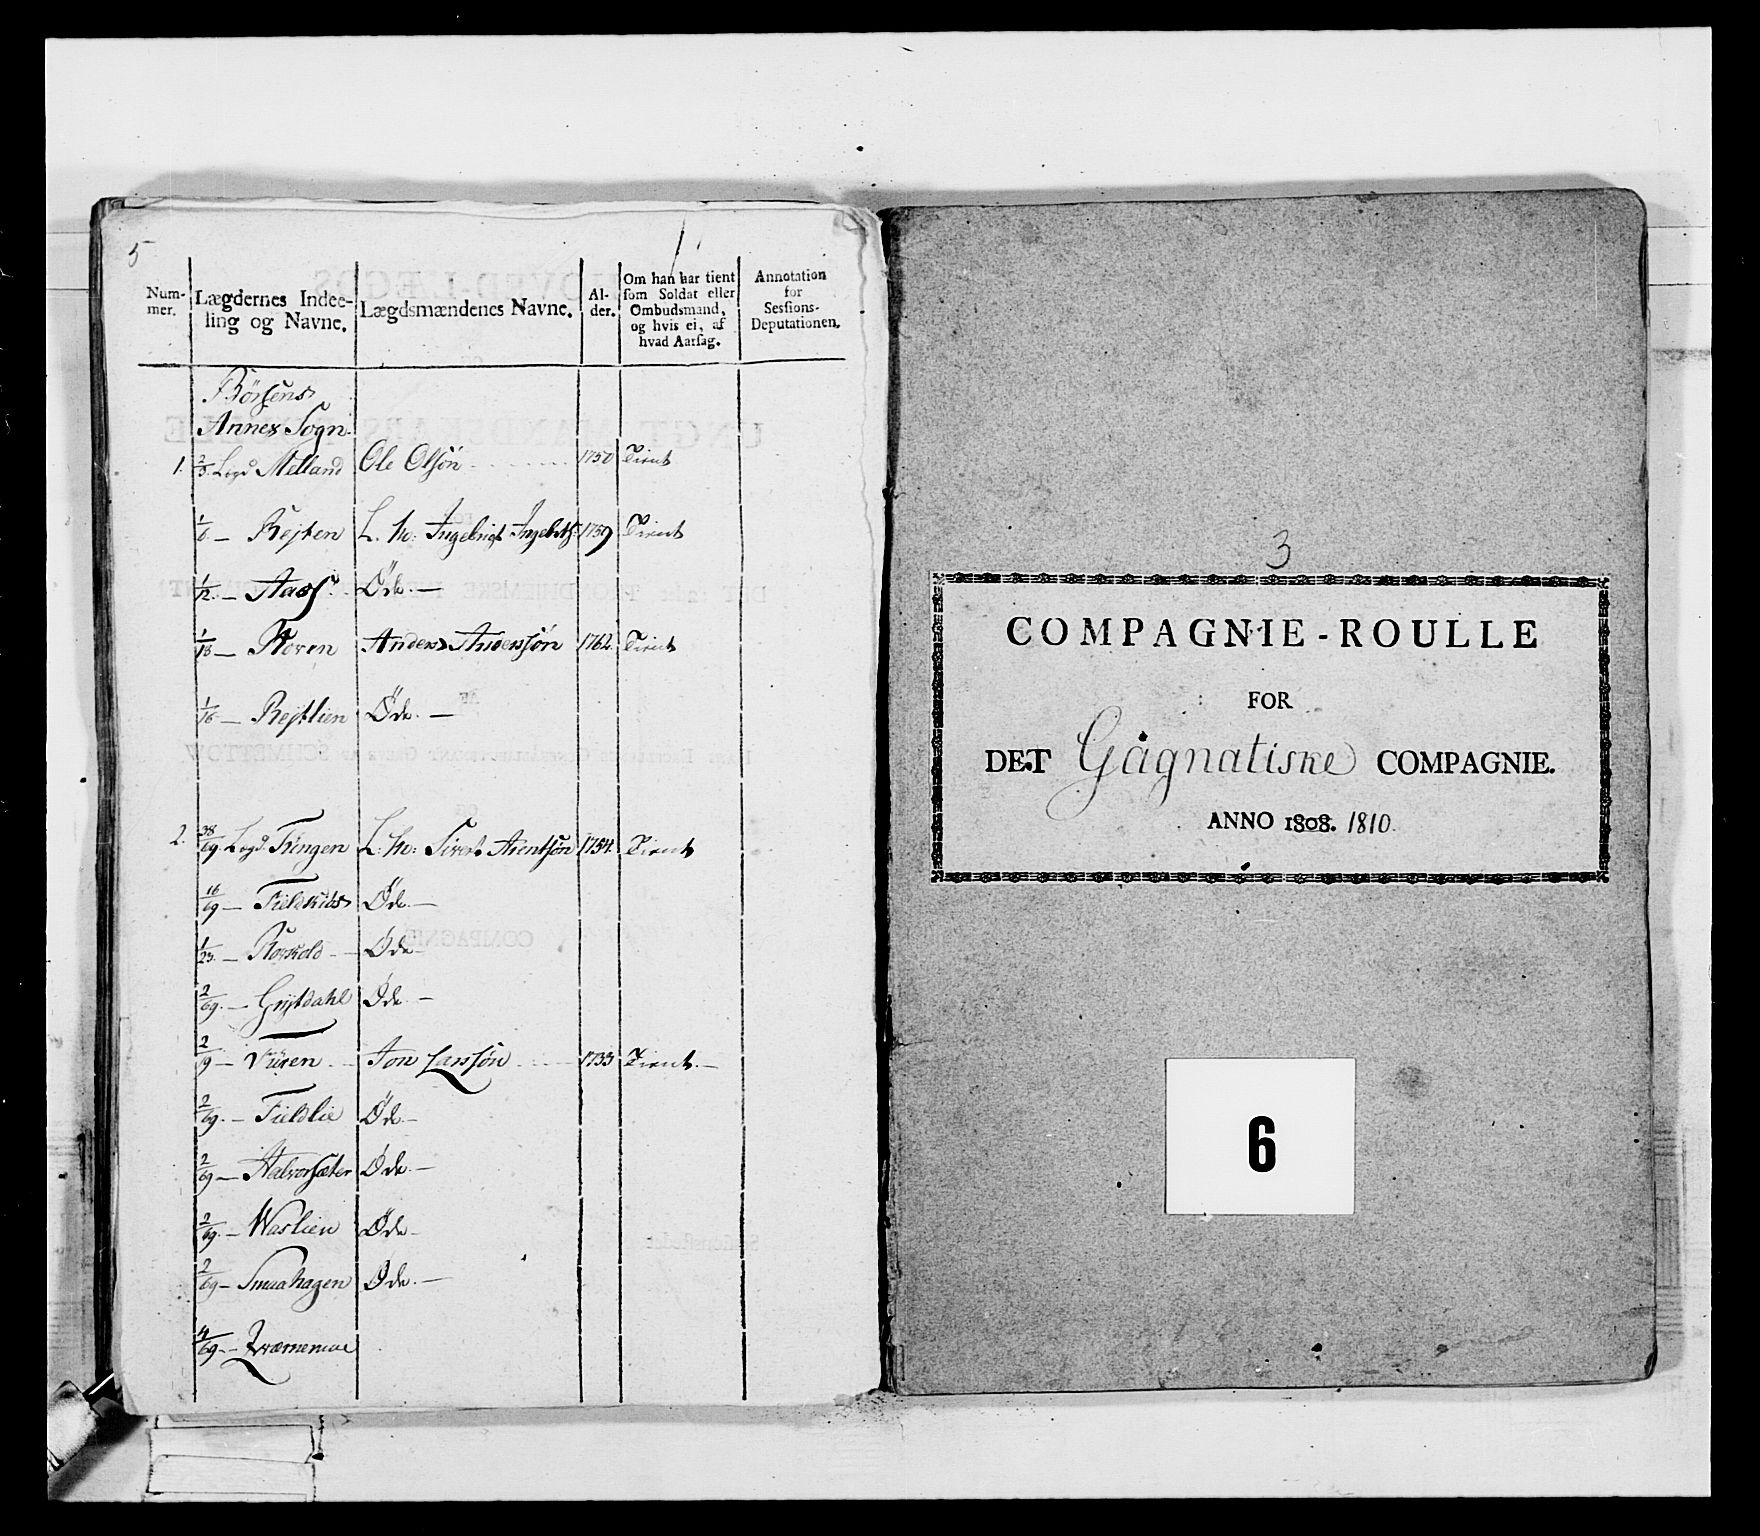 5
Num-
mer.
Lægdernes Indee-
ling og Navne.
Lægdsmændenes Navne.
Al-
der.
Om han har tient
som Soldat eller
Ombudsmand,
og hvis ei, af
hvad Aarsag.
Annotation
for
Sessions-
Deputationen.
Børsens
Annex Sogn.
1. 2/3. Legd Melland Ole Olsön 1750 Tient
1/6 — Rejten L. M: Ingebrigt Ingebrts: 1759 Tient
1/12. — Aass Öde —
1/18 — Horen Anders Andersön 1762. Tient
1/16 — Rejtlien Öde. —
2. 38/69. Legd. L. M: Sivert Arentsön 1754. Tient
16/69 — Fieldkids Øde. —
1/23. — Øde —
2/69. — Gristdahl Øde. —
2/19 — Vüren Jon Larssøn 1733 Tient. —
2/69. — Fieldlie Øde —
2/69 — Halvorsæter Øde. —
2/69. — Waslien Øde —
2/69 — Smaahagen Øde. —
4/69. — Kværnemoe
3
COMPAGNIE-ROULLE
FOR
DET Gagnatiske COMPAGNIE.
ANNO 1808. 1810.
6